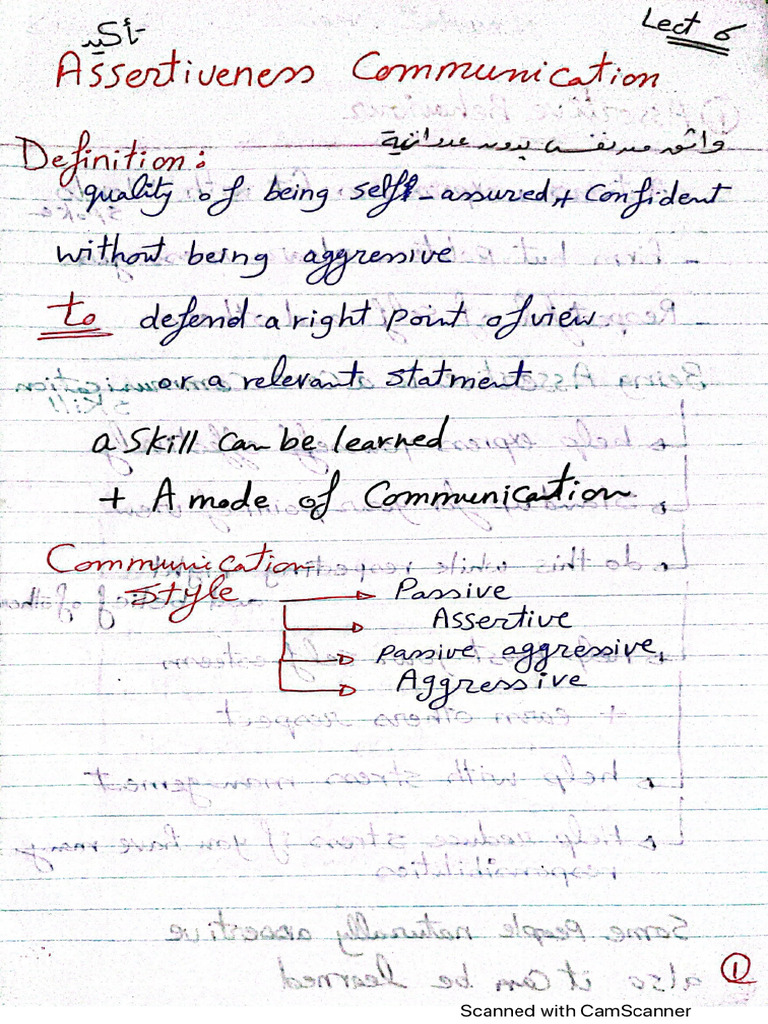 Lect 6
تأكيد
Assertiveness Communication
Definition:
واثق من نفسه بدون عدوانية
quality of being self-assured + confident
without being aggressive
to defend a right point of view
or a relevant statment
a skill can be learned
+ A mode of Communication
Communication
style
Passive
Assertive
Passive aggressive
Aggressive
1
Scanned with CamScanner